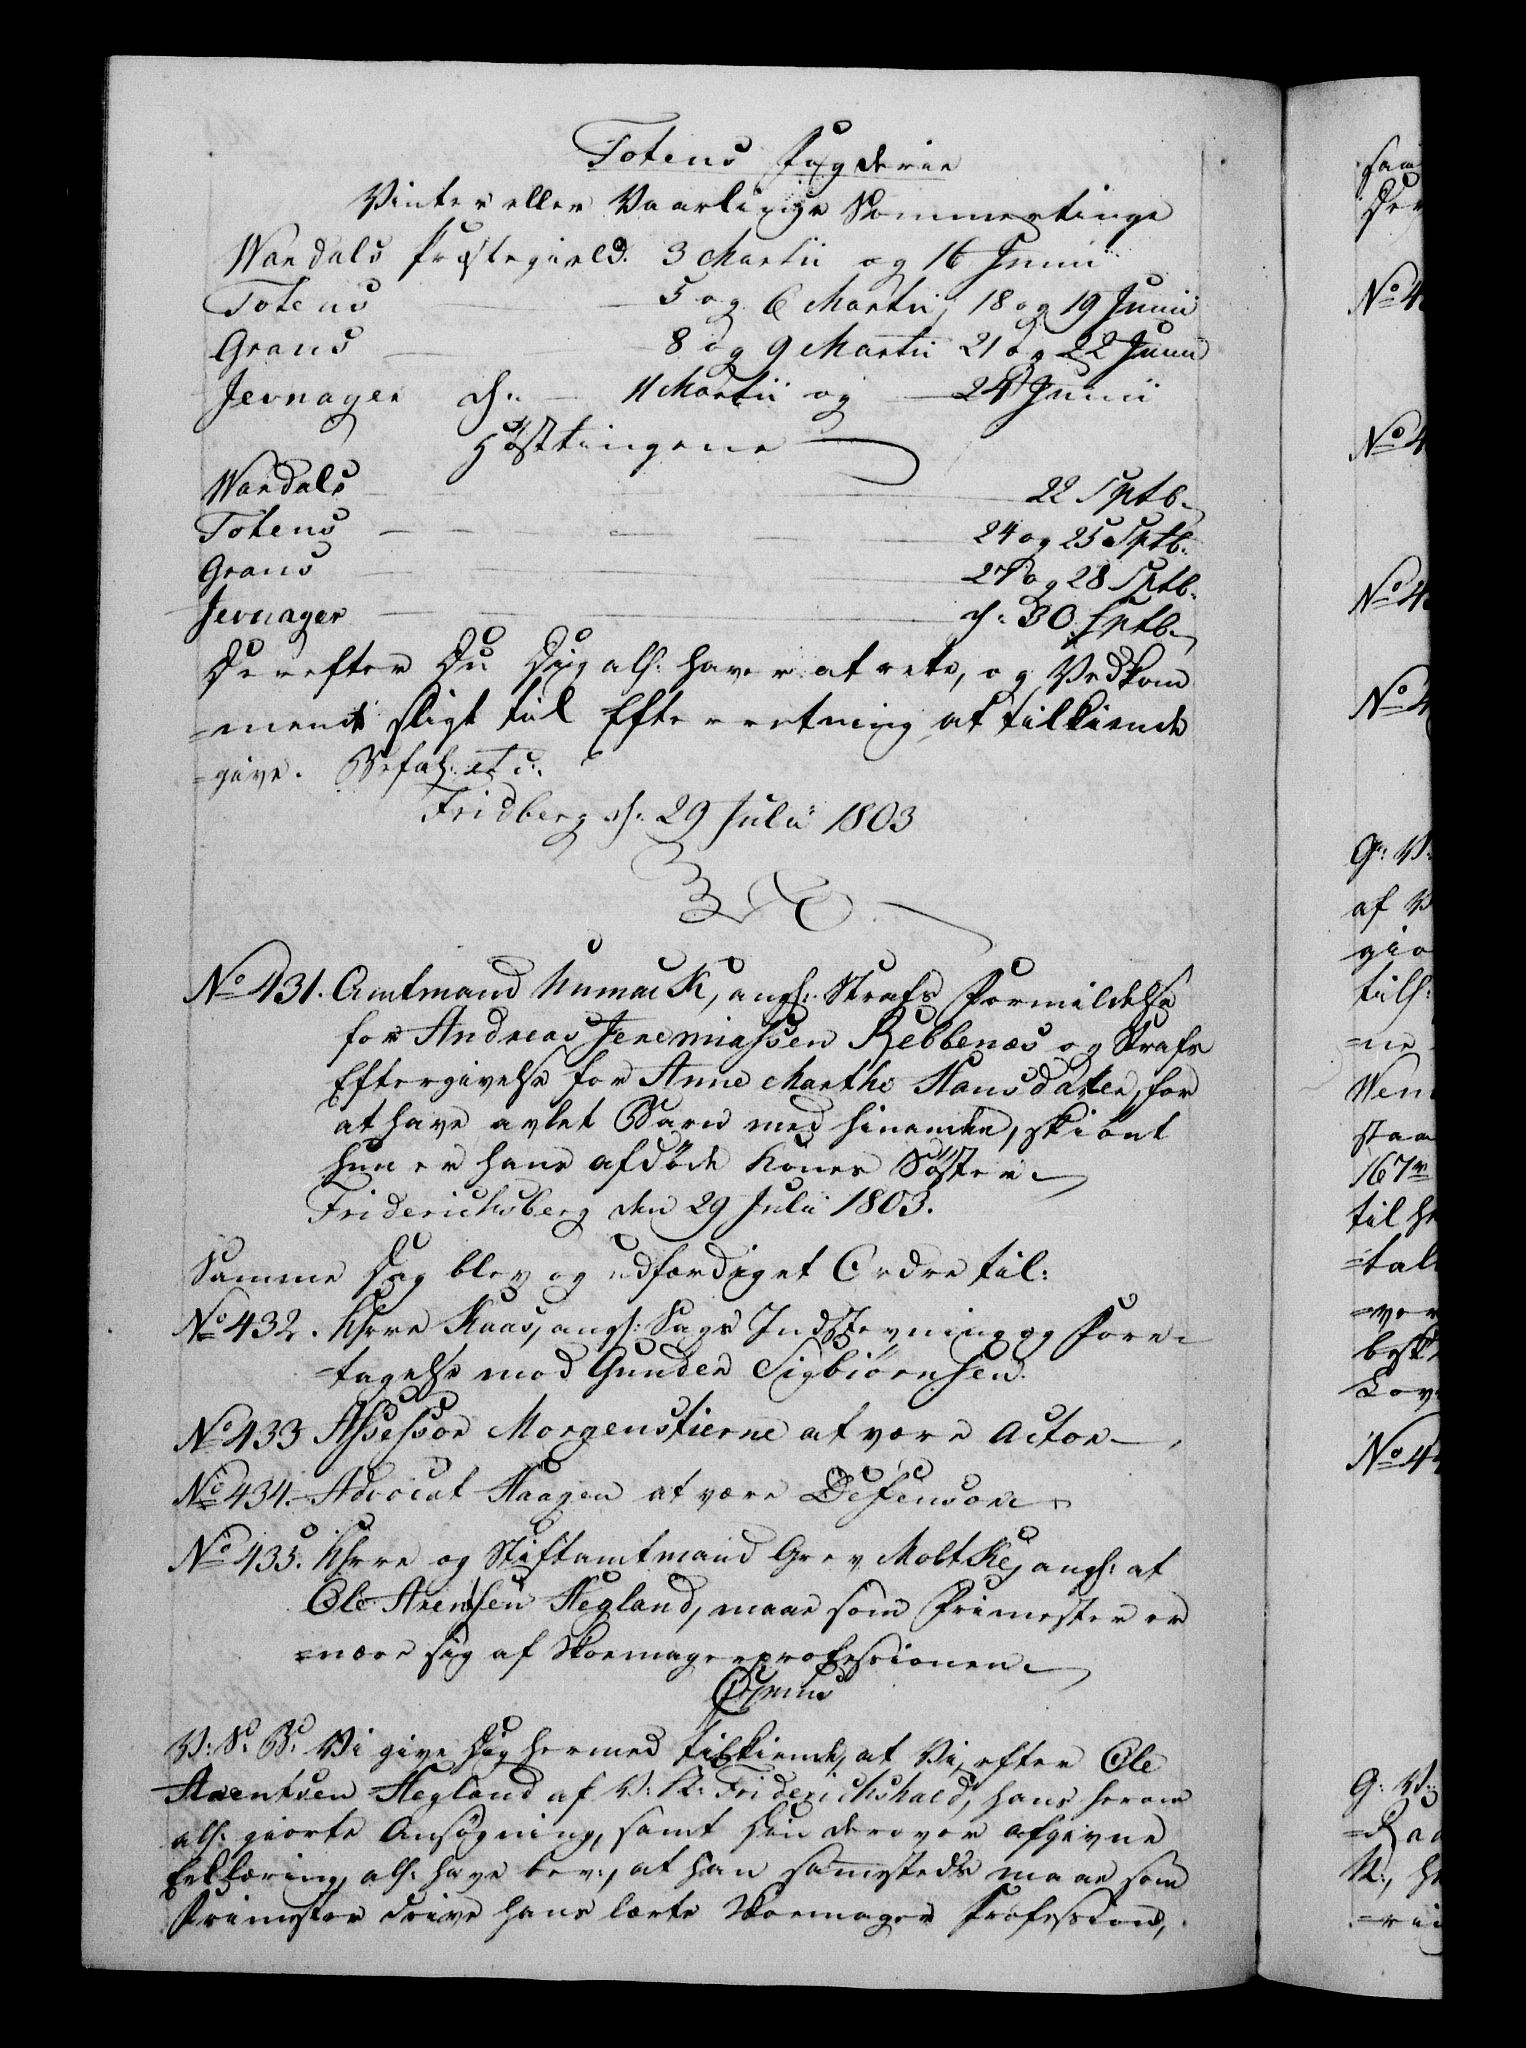 Totens Fogderie
Vinter eller Vaartinge Sommertinge
Wardals Præstegield. 3 Martii og 16 Junii
Totens 5 og 6 Martii, 18 og 19 Junii
Grans 8 og 9 Martii 21 og 22 Junii
Jevnager d: 11 Martii og 24 Junii
Hösttingene
Wardals 22 Septb.
Totens 24 og 25 Septb.
Grans 27 og 28 Septb.
Jevnager d: 30 Septb.
Derefter Du Dig als: haver at rette, og Vedkom
=mende sligt til Efterretning at tilkiende
=give. Befal: etc:
Fridberg d: 29 Julii 1803
No 431. Amtmand Kumack, angs: Strafs Formildelse
for Andreas Jeremiassen Rebbenæs og Strafs
Eftergivelse for Anne Marthe Hansdatter, for
at have avlet Barn med hinanden, skiönt
hun er hans afdöde Kones Söster
Friderichsberg den 29 Julii 1803.
Samme Dag blev og udfærdiget Ordre til:
No 432. Khrre Kaas, angs: Sags Indstevning og Fore=
=tagelse mod Gunder Sigbiørnsen.
No 433 Assessor Morgenstierne at være Actor
No 434. Advocat Haagen at være Defensor
No 435. Khrre og Stiftamtmand Grev Moltke, angs: at
Ole Arentsen Hegland, maae som Frimester er
=nære sig af Skomagerprofessionen
V: S: B: Vi give Dig hermed tilkiende, at Vi, efter Ole
Arentsen Hegland af V: K: Friderichshald, hans herom
als: giorte Ansøgning, samt Din derover afgivne
Erklæring, als: have bev:, at han samesteds maae som
Frimester drive hans lærte Skomager Profession,